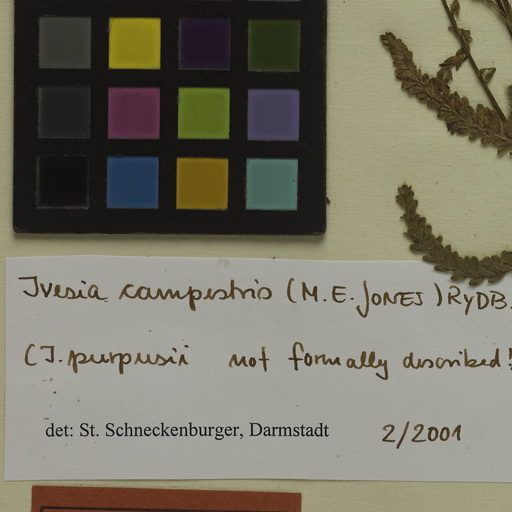 Ivesia campestris (M.E. JONES) RYDB.
(I. purpusii not formally described!
det: St. Schneckenburger, Darmstadt 2/2001